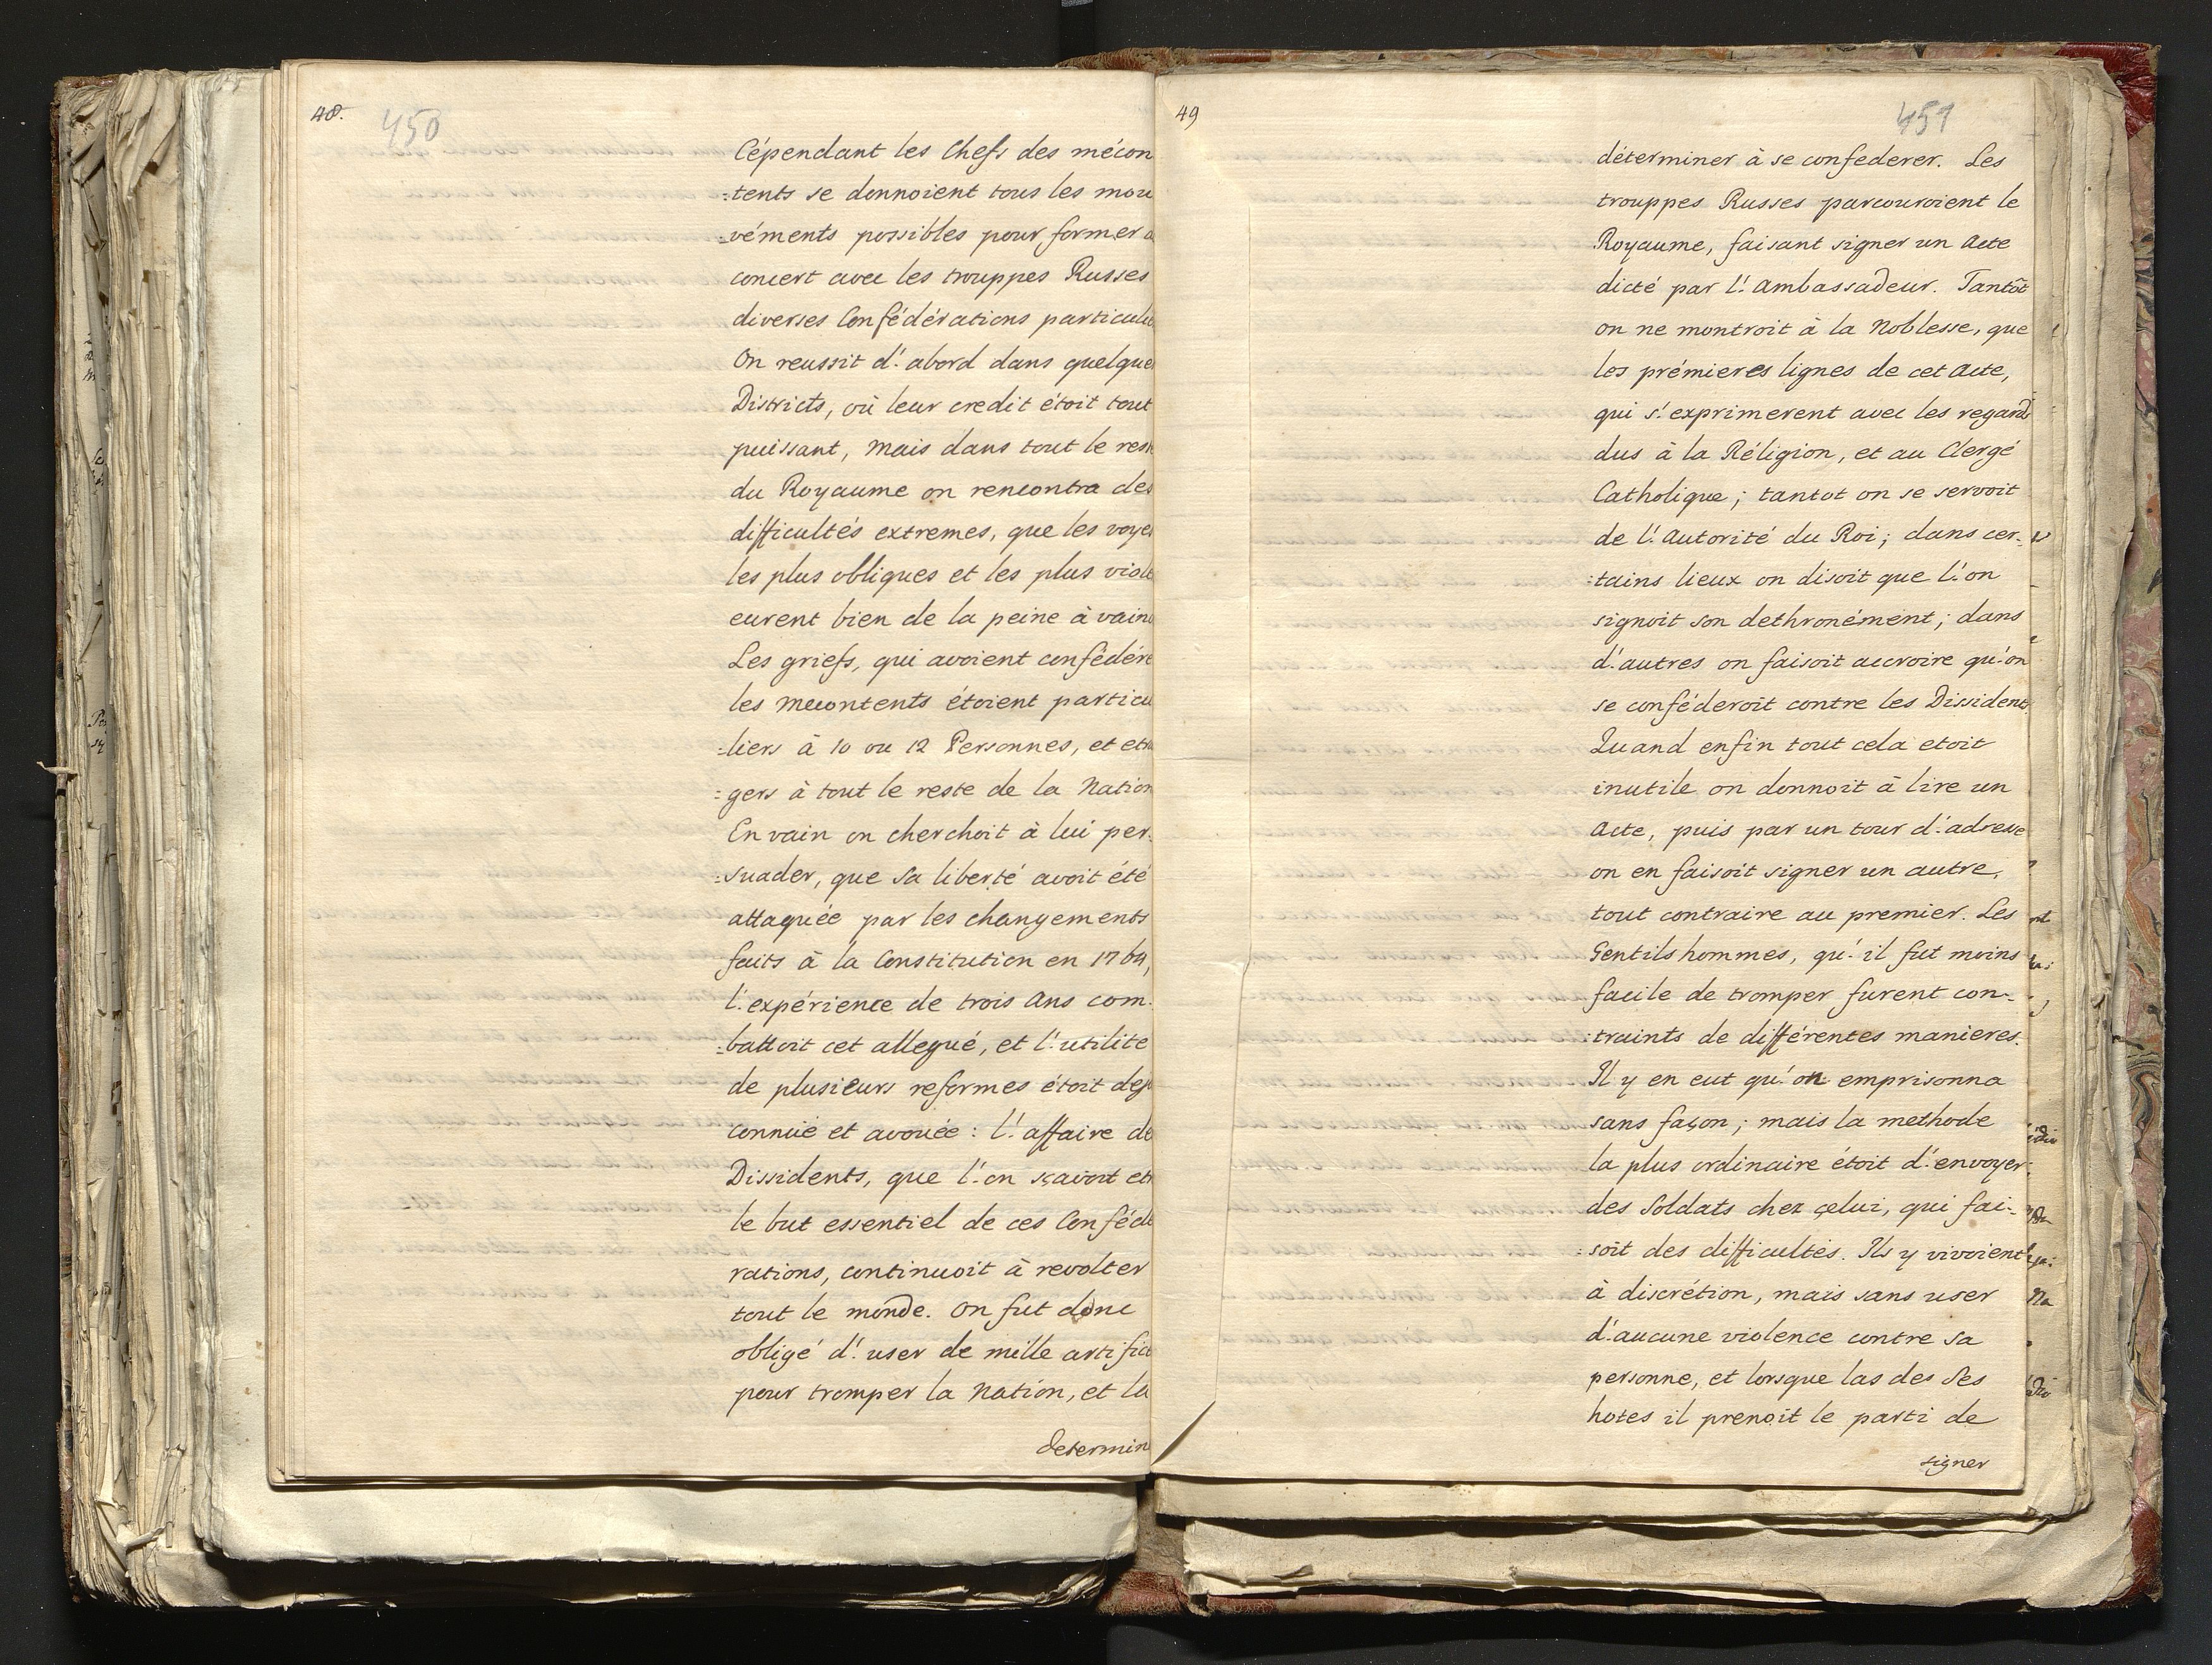 48.
450
Cépendant les Chefs des mécon
:tents se donnoient tous les mou
:véments possibles pour former a
concert avec les trouppes Russes
diverses Confédérations particule
On reussit d'abord dans quelque
Districts, où leur credit étoit tout
puissant, mais dans tout le rest
du Royaume on rencontra des
difficultés extremes, que les voyes
les plus obliques et les plus viole
eurent bien de la peine à vainc
Les griefs, qui avoient confédéré
les mecontents étoient particu
:liers à 10 ou 12 Personnes, et etra
:gers à tout le reste de la Nation
En vain on cherchoit à lui per.
:suader, que sa liberté avoit été
attaquée par les changements
faits à la Constitution en 1764,
l'expérience de trois ans com.
:battoit cet allegué, et l'utilité
de plusieurs reformes étoit deja
connüe et avoüée: l'affaire de
Dissidents, que l'on sçavoit etr
le but essentiel de ces Conféde
rations, continuoit à revolter
tout le monde. On fut donc
obligé d'user de mille artific
pour tromper la Nation, et la
determin
49
451
déterminer à se confederer. Les
trouppes Russes parcouroient le
Royaume, faisant signer un Acte
dicté par l'Ambassadeur. Tantôt
on ne montroit à la Noblesse, que
les prémieres lignes de cet Acte,
qui s'exprimerent avec les regards
dus à la Réligion, et au Clergé
Catholique; tantot on se servoit
de l'Autorité du Roi; dans cer.
:tains lieux on disoit que l'on
signoit son dethronément; dans
d'autres on faisoit accroire qu'on
se conféderoit contre les Dissident
Quand enfin tout cela etoit
inutile on donnoit à lire un
Acte, puis par un tour d'adresse
on en faisoit signer un autre,
tout contraire au premier. Les
Gentilshommes, qu'il fut moins
facile de tromper furent con-
:traints de différentes manieres.
Il y en eut qu'on emprisonna
sans façon; mais la methode
la plus ordinaire étoit d'envoyer
des Soldats chez çelui, qui fai-
:soit des difficultés. Ils y vivoient
à discrétion, mais sans user
d'aucune violence contre sa
personne, et lorsque las des ses
hotes il prenoit le parti de
signer